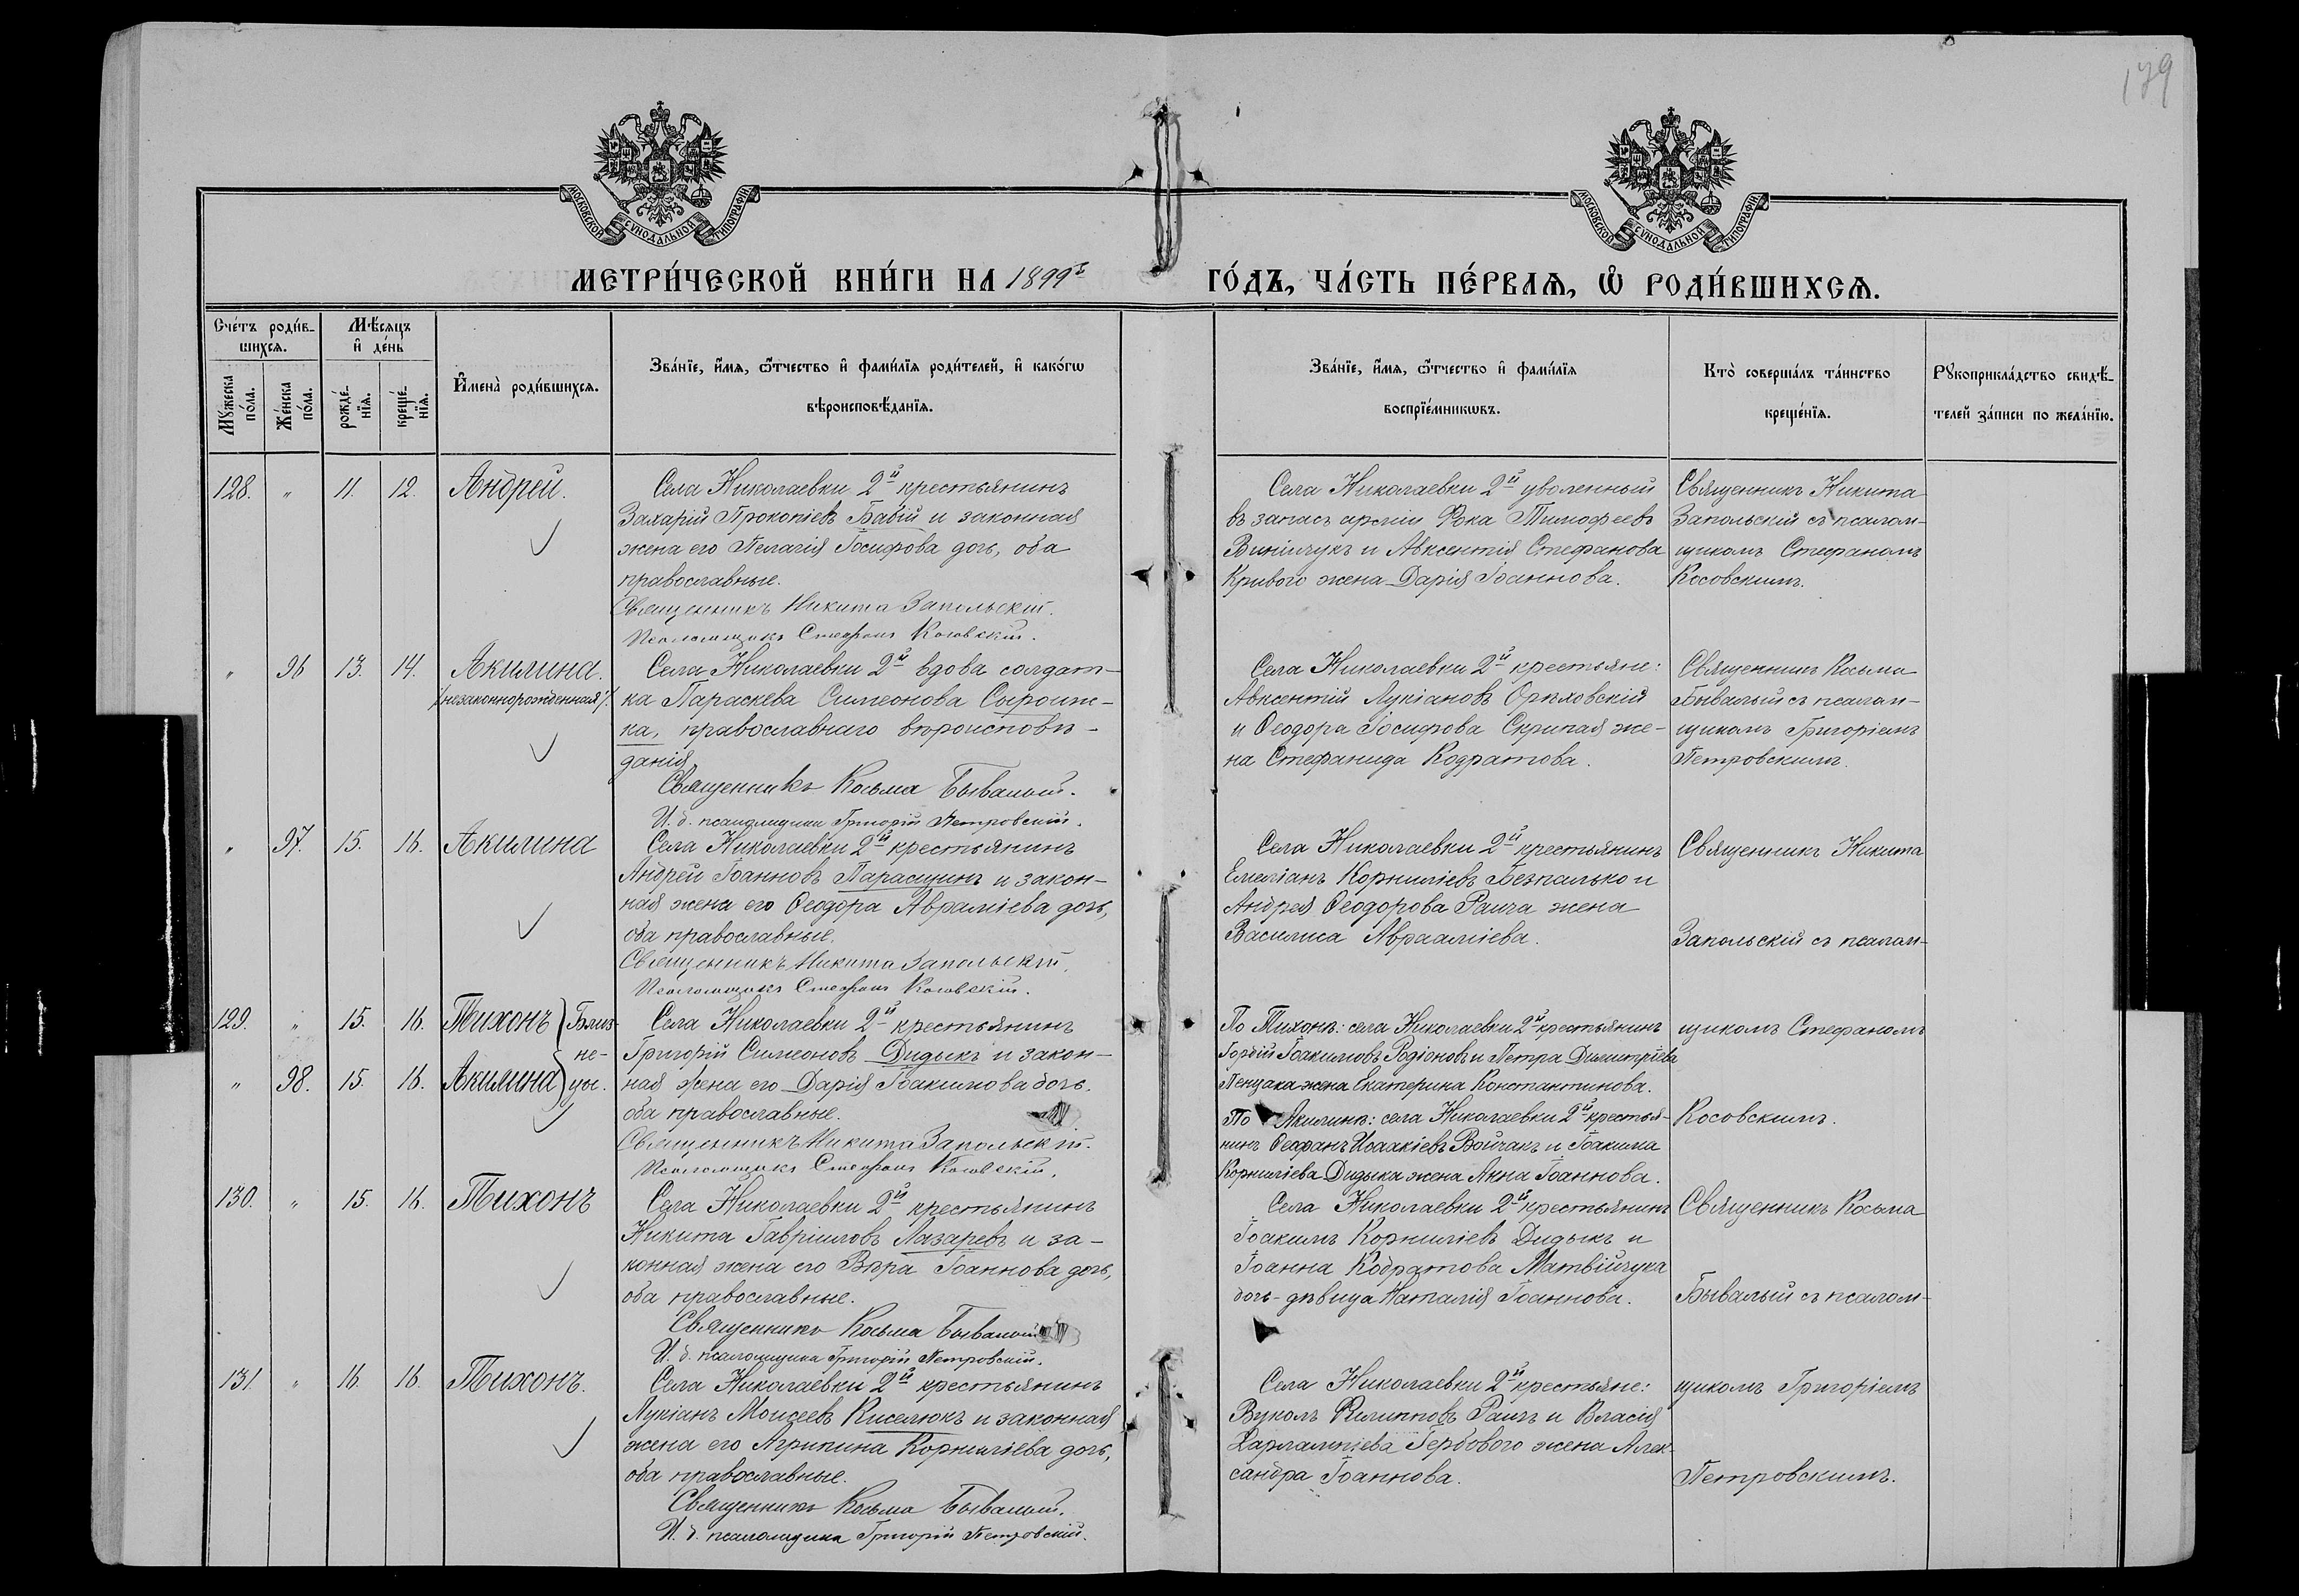 179
МОСКОВСКОЙ СУНОДАЛЬНОЙ ТИПОГРАФІИ
МОСКОВСКОЙ СУНОДАЛЬНОЙ ТИПОГРАФІИ
МЕТРИ́ЧЕСКОЙ КНИ́ГИ НА 1899й
ГО́ДЪ, ЧА́СТЬ ПЕ́РВАѦ, Ѡ РОДИ́ВШИХСѦ.
Сче́тъ роди́в-
шихсѧ.
Мꙋ́жеска
по́ла.
Же́нска
по́ла.
Мѣ́сяцъ
и де́нь
рожде́-
нїѧ.
креще́-
нїѧ.
И҆мена̀ роди́вшихсѧ.
Зва́нїе, и҆́мѧ, ѻ҆́тчество и҆ фами́лїѧ роди́телей, и҆ како́гѡ
вѣроисповѣ́данїѧ.
Зва́нїе, и҆́мѧ, ѻ҆́тчество и҆ фами́лїѧ
воспрїе́мникѡвъ.
Кто̀ соверша́лъ та́инство
креще́нїѧ.
Рꙋкоприкла́дство свидѣ́-
телей за́писи по жела́нїю.
128. " 11. 12. Андрей.
Села Николаевки 2й крестьянинъ
Захарій Прокопіевъ Бабій и законная
жена его Пелагія Іосифова дочь, оба
православные.
Священникъ Никита Запольскій.
Псаломщикъ Стефанъ Косовскій.
Села Николаевки 2й уволенный
въ запасъ арміи Фока Тимофеевъ
Винничукъ и Авксентія Стефанова
Кривого жена Дарія Іоаннова.
Священникъ Никита
Запольскій съ псалом-
щикомъ Стефаномъ
Косовскимъ.
" 96 13. 14. Акилина.
/незаконнорожденная/.
Села Николаевки 2й вдова солдат-
ка Параскева Симеонова Сыроиж-
ка, православнаго вѣроисповѣ-
данія
Священникъ Косьма Бывалый.
И. д. псаломщика Григорій Петровскій.
Села Николаевки 2й крестьяне:
Авксентій Лукіановъ Орѣховскій
и Ѳеодора Іосифова Скрипая же-
на Стефанида Кодратова.
Священникъ Косьма
Бывалый съ псалом-
щикомъ Григоріемъ
Петровскимъ.
" 97. 15. 16. Акилина
Села Николаевки 2й крестьянинъ
Андрей Іоанновъ Паращинъ и закон-
ная жена его Ѳеодора Авраміева дочь,
оба православные.
Священникъ Никита Запольскій.
Псаломщикъ Стефанъ Косовскій.
Села Николаевки 2й крестьянинъ
Емеліанъ Корниліевъ Безпалько и
Андрея Ѳеодорова Раича жена
Василиса Авраамiева.
Священникъ Никита
Запольскій съ псалом-
129. " 15. 16. Тихонъ Близ-
не-
" 98. 15. 16. Акилина цы.
Села Николаевки 2й крестьянинъ
Григорій Симеоновъ Дидыкъ и закон-
ная жена его Дарія Іоакимова дочь.
оба православные.
Священникъ Никита Запольскій.
Псаломщикъ Стефанъ Косовскій.
По Тихонѣ: села Николаевки 2й крестьянинъ
Гордій Іоакимовъ Родіоновъ и Петра Димитріева
Пенцака жена Екатерина Константинова.
По Акилинѣ: села Николаевки 2й крестья-
нинъ Ѳеофанъ Исаакіевъ Войчакъ и Іоакима
Корниліева Дидыка жена Анна Іоаннова.
щикомъ Стефаномъ
Косовскимъ.
130. " 15. 16. Тихонъ
Села Николаевки 2й крестьянинъ
Никита Гавріиловъ Лазаревъ и за-
конная жена его Вѣра Іоаннова дочь,
оба православные.
Священникъ Косьма Бывалый
И. д. псаломщика Григорій Петровскій.
Села Николаевки 2й крестьянинъ
Іоакимъ Корниліевъ Дидыкъ и
Іоанна Кодратова Матвійчука
дочь-дѣвица Наталія Іоаннова.
Священникъ Косьма
Бывалый съ псалом-
131. " 16. 16. Тихонъ.
Села Николаевки 2й крестьянинъ
Лукіанъ Моисеевъ Киселюкъ и законная
жена его Агрипина Корниліева дочь,
оба православные.
Священникъ Косьма Бывалый.
И. д. псаломщика Григорій Петровскій.
Села Николаевки 2й крестьяне:
Вуколъ Филипповъ Раичъ и Власія
Харлампіева Гербового жена Алек-
сандра Іоаннова.
щикомъ Григоріемъ
Петровскимъ.